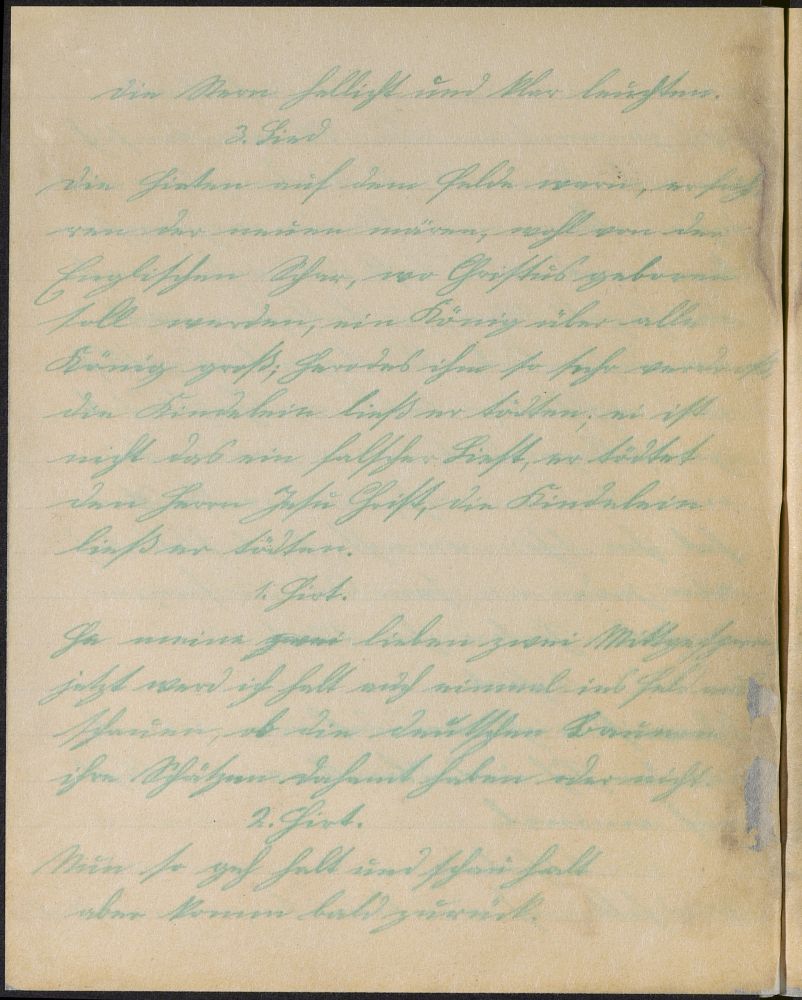 die Stern hellicht und klar leuchten.
3. Lied
Die Hirten auf dem Felde warn, erfuh
ren der neuen mären, wohl von der
Englischen Schar, wo Christus geboren
soll werden, ein König über alle
König groß; Herodes ihm so sehr verdroß
die Kindelein ließ er tödten, ei ist
nicht das ein falscher Liest, er tödtet
den Herrn Jesu Christ, die Kindelein
ließ er tödten.
1. Hirt.
He meine zwei lieben zwei
jetzt werd ich halt auch einmal ins Feld
schauen, ob die deutschen Bauern
ihre daheimt haben oder nicht.
2. Hirt.
Nun so geh halt und schau halt
aber komm bald zurück.